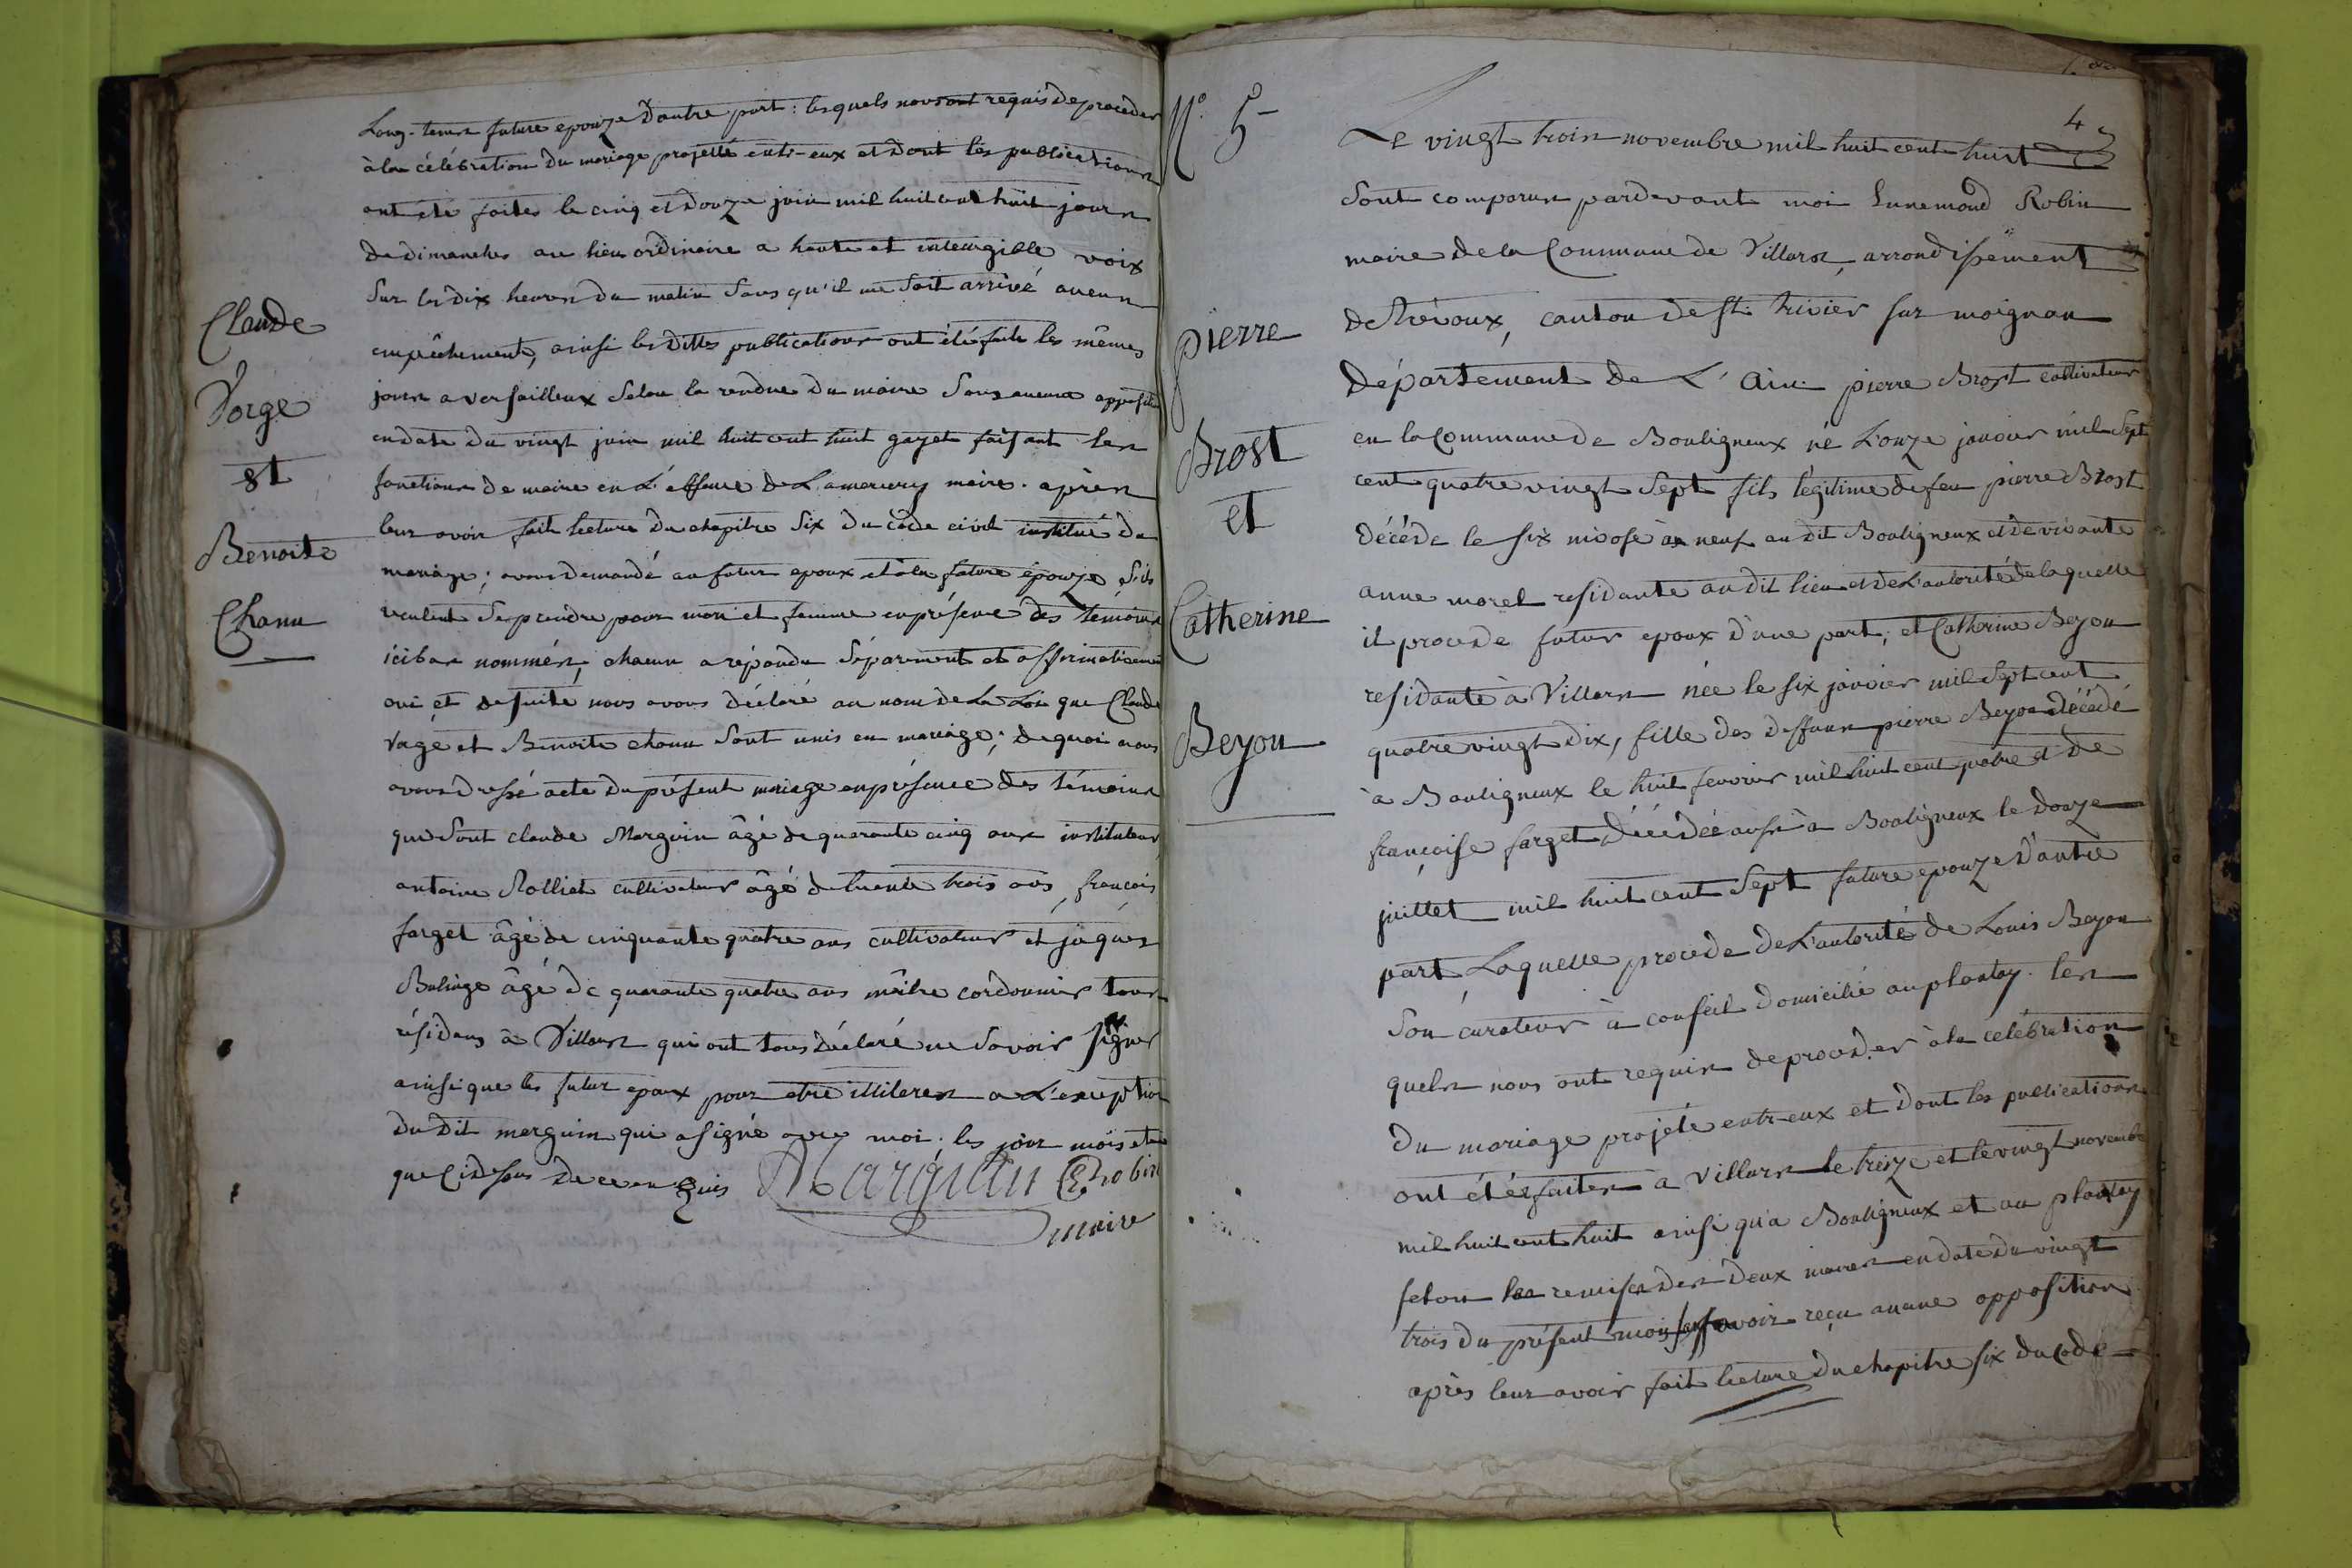 Long-tems future epouze D'autre part : lesquels nous ont requis De proceder
à la célébration Du mariage projetté entr-eux et Dont les publications
ont été faites le cinq et Douze juin mil huit cent huit jours
De Dimanches au lieu ordinaire a haute et inteligible voix
Sur les Dix heures Du matin Sans qu'il ne Soit arrivé aucun
empêchement, ainsi les Dittes publications ont été faite les mêmes
jours a versailleux Selon la rendue Du maire Sans aucune
en date Du vingt juin mil huit cent huit gayet faisant les
fonctions De maire en L'absence De Lamercery maire . après
leur avoir fait lecture Du chapitre Six Du code civil institué Du
mariage ; avons Demandé au futur epoux et à la future épouze S'ils
veulent Se prendre pour mari et femme en présence des témoins
ici bas nommés, chacun a répondu Séparement et affirmativement
oui et de suite nous avons Déclaré au nom De La Loi que Claude
et Benoite chanu Sont unis en mariage ; De quoi nous
avons Dressé acte Du présent mariage en présence des témoins
que Sont claude Marguin âgé de quarante cinq ans instituteur
antoine Rolliet cultivateur âgé de trente trois ans, françois
farget âgé de cinquante quatre ans cultivateur et jaques
âgé De quarante quatre ans maître cordonnier tous
résidans à Villars qui ont tous Déclaré ne Savoir signer
ainsi que les futur epoux pour etre illiteres a L'exception
Du Dit marguin qui a signé avec moi . les jour mois et an
que Cidessus
Marguin E robin
maire
Claude
Vorge
et
Benoite
Chanu
N.° 5
4
Le vingt trois novembre mil huit cent huit
Sont comparus pardevant moi Ennemond Robin
maire De la Commune De Villars, arrondissement
De Trévoux, canton De St. trivier sur moignan
Département De L'Ain pierre Brost cultivateur
en la Commune De Bouligneux né L'onze janvier mil Sept
cent quatre vingt Sept fils légitime De feu pierre Brost
Décéde le six nivose an neuf au Dit Bouligneux et De vivante
anne morel residante au Dit lieu et De L'autorité De laquelle
il procede futur epoux D'une part ; et Catherine Beyon
residante à Villars née le six janvier mil Sept cent
quatre vingt Dix, fille des Deffuns pierre Beyon décédé
à Bouligneux le huit fevrier mil huit cent quatre et De
françoise farget Décédée aussi à Bouligneux le Douze
juillet mil huit cent Sept future epouze D'autre
part Laquelle procede De L'autorité De Louis Beyon
Son curateur à conseil Domicilié au plantay . les
quels nous ont requis De proceder à la célébration
Du mariage projeté entr-eux et Dont les publications
ont étés faites à Villars le treize et le vingt novembre
mil huit cent huit ainsi qu'a Bouligneux et au plantay
selon les remises Des Deux maires en date Du vingt
trois Du présent mois sans avoir reçu aucune opposition
après leur avoir fait lecture Du chapitre six Du Code
pierre
Brost
et
Catherine
Beyon